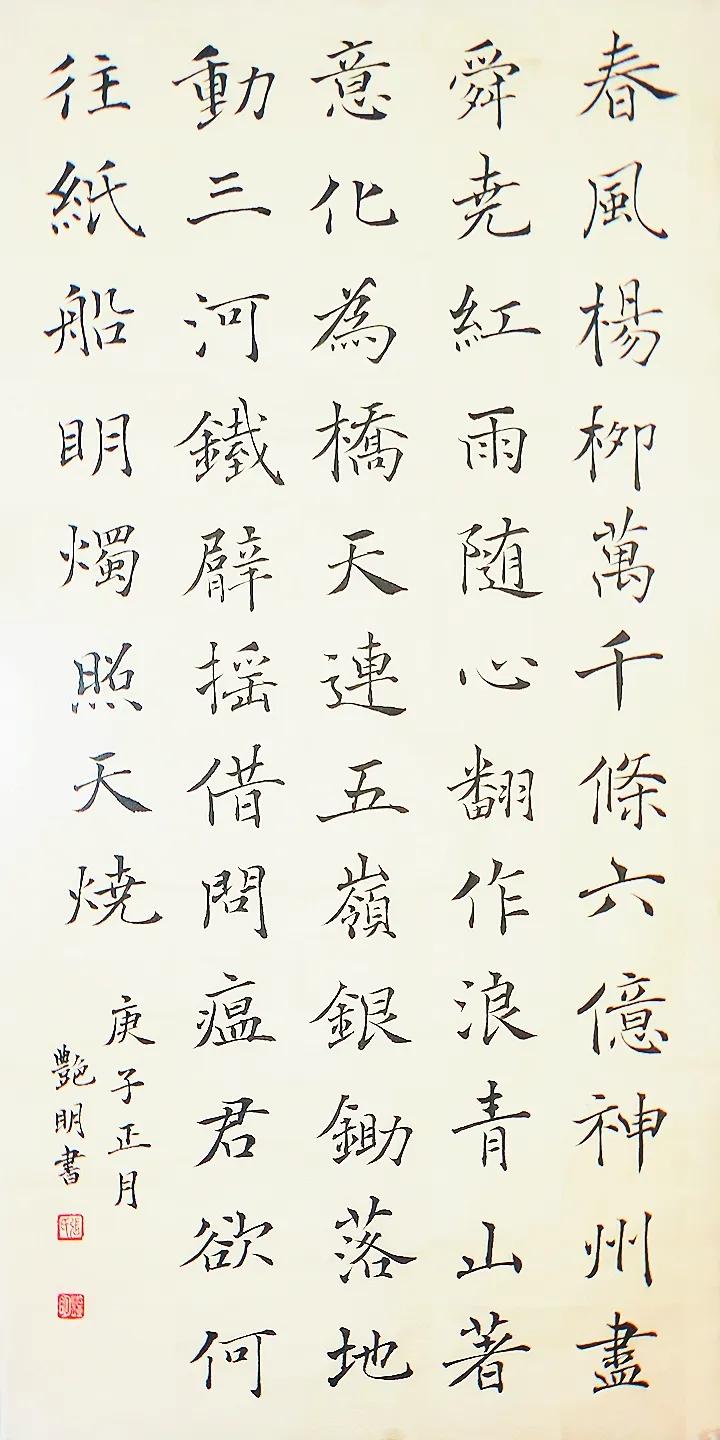 春風楊柳萬千條六億神州盡
舜尭紅雨随心翻作浪青山著
意化為橋天連五嶺銀鋤落地
動三河鐵臂摇借問瘟君欲何
往紙船明燭照天焼
庚子正月
艷明書